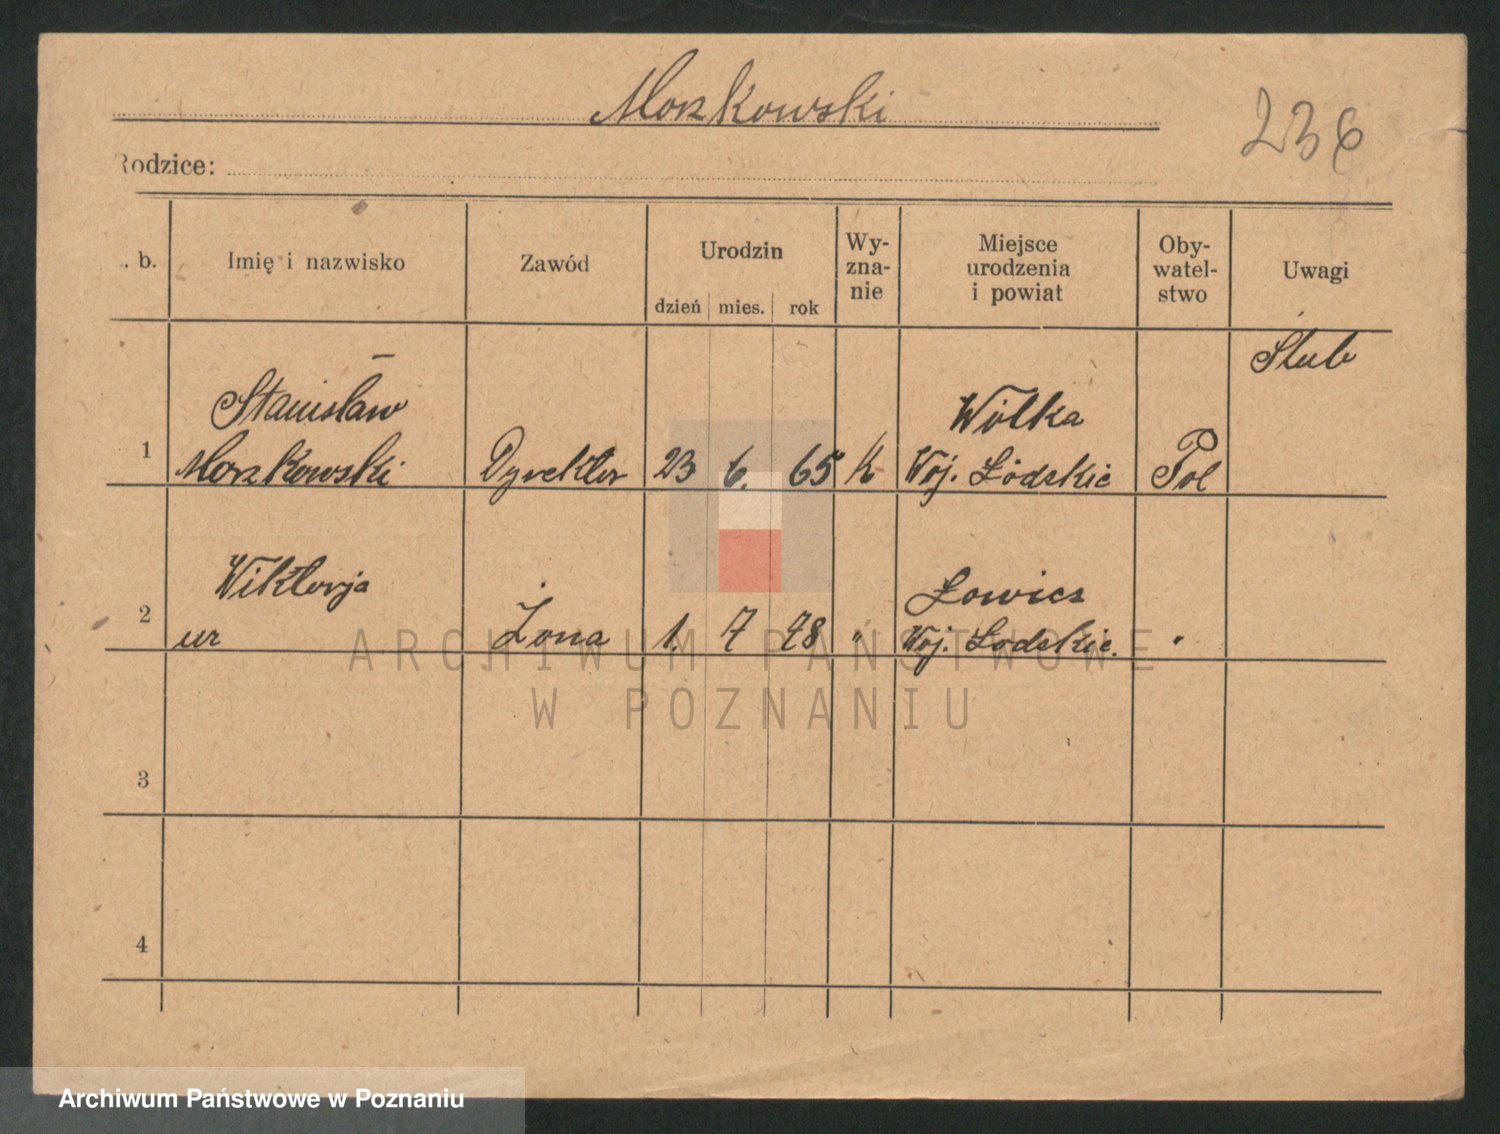 Morzkowski
236
Rodzice:
. b. Imię i nazwisko Zawód Urodzin dzień mies. rok Wy-zna-nie Miejsce urodzenia i powiat Oby-watel-stwo Uwagi
Ślub
Stanisław Wólka
1 Morzkowski Dyrektor 23 6. 65 k Woj. Łódzkie Pol
Wiktorja Łowicz
2 ur Żona 1. 7 78 " Woj. Łodzkie. "
ARCHIWUM PAŃSTWOWE
W POZNANIU
3
4
Archiwum Państwowe w Poznaniu